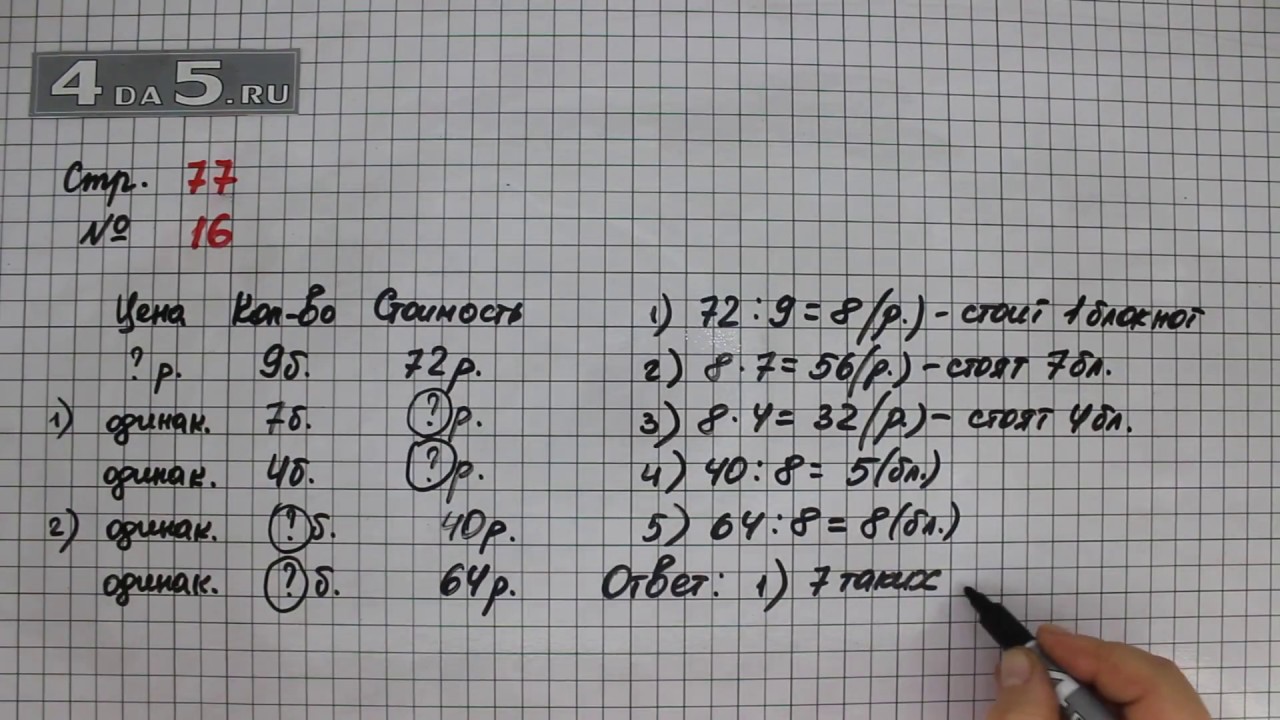 4 DA 5.RU
Стр. 77
№ 16
Цена Кол-во Стоимость
? р. 9б. 72р.
1) одинак. 7б. ? р.
одинак. 4б. ? р.
2) одинак. ? б. 40р.
одинак. ? б. 64р.
1) 72 : 9 = 8 (р.) - стоит 1 блокнот
2) 8 · 7 = 56 (р.) - стоят 7 бл.
3) 8 · 4 = 32 (р.) - стоят 4 бл.
4) 40 : 8 = 5 (бл.)
5) 64 : 8 = 8 (бл.)
Ответ: 1) 7 таких